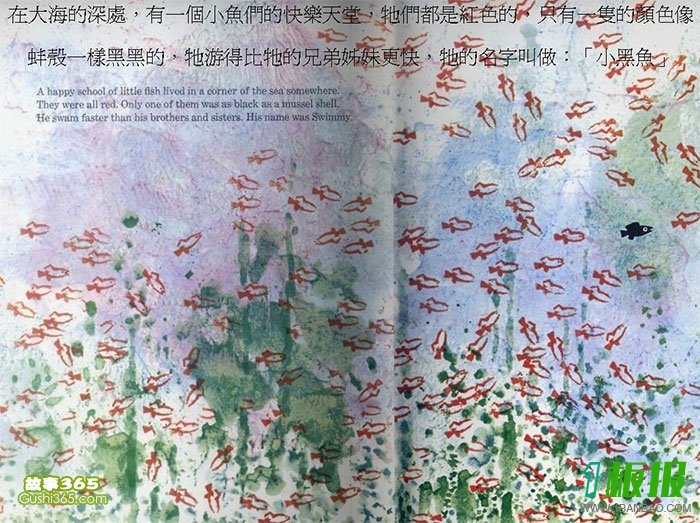 在大海的深處，有一個小魚們的快樂天堂，牠們都是紅色的，只有一隻的顏色像
蚌殼一樣黑黑的，牠游得比牠的兄弟姊妹更快，牠的名字叫做：「小黑魚」
A happy school of little fish lived in a corner of the sea somewhere.
They were all red. Only one of them was as black as a mussel shell.
He swam faster than his brothers and sisters. His name was Swimmy.
故事365
Gushi365.com
1板报
WWW.1BANBAO.COM